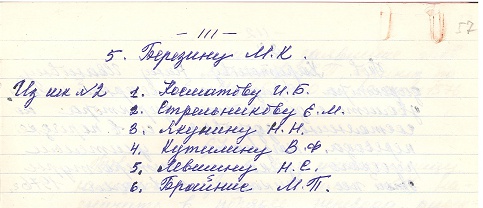 — 111 —
57
5. Березину М.К.
Из шк №2 1. Косматову И.Б.
2. Стрельникову Е.М.
3. Якунину Н.Н.
4. Кутилину В.Ф.
5. Левшину Н.Е.
6. Брайнис М.П.